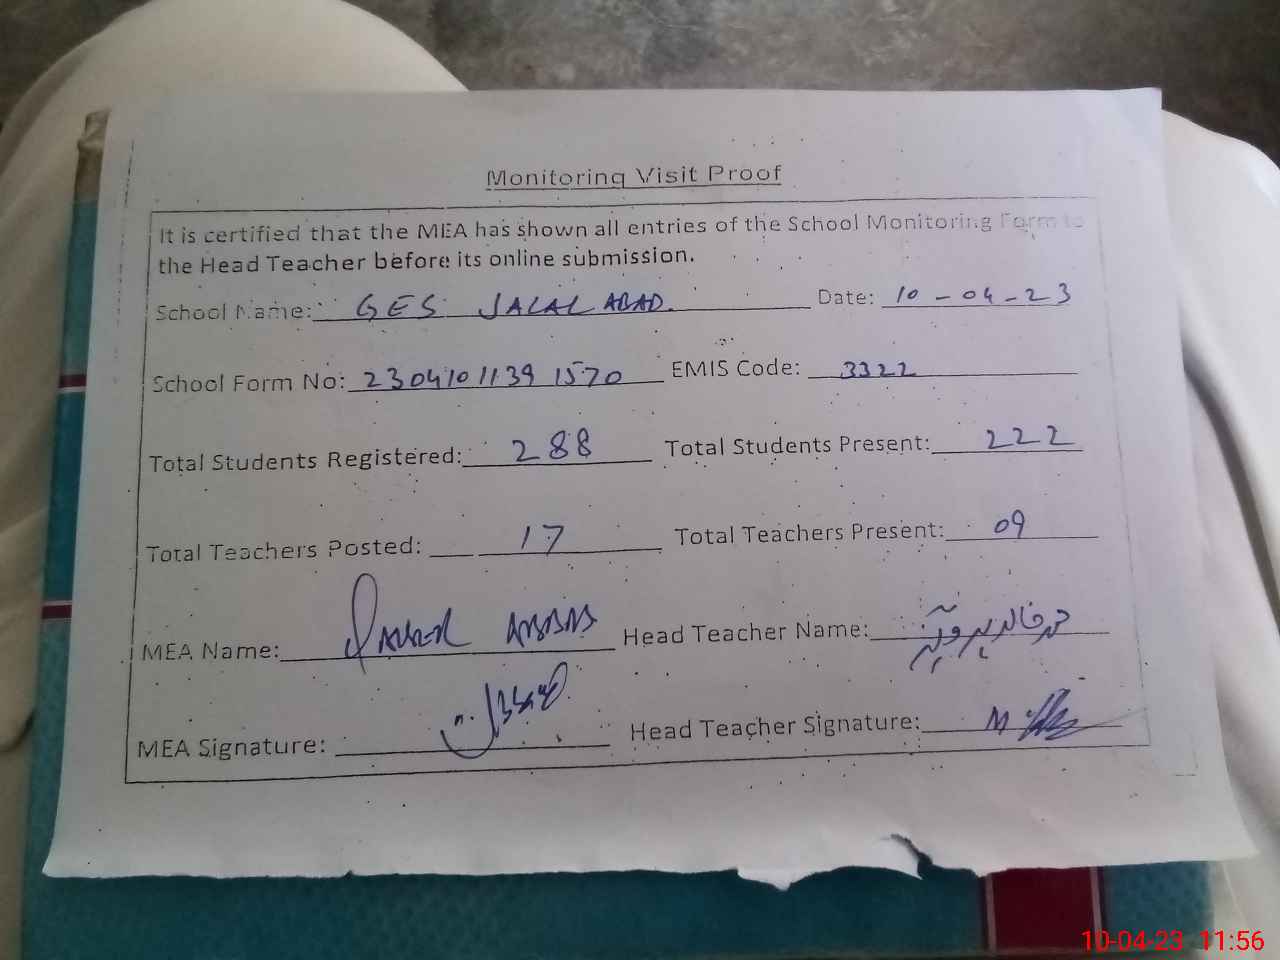 Monitoring Visit Proof
It is certified that the MEA has shown all entries of the School Monitoring Form to
the Head Teacher before its online submission.
School Name: GES JALAL ABAD. Date: 10-04-23
School Form No: 2304101139 1570 EMIS Code: 3322
Total Students Registered: 288 Total Students Present: 222
Total Teachers Posted: 17 Total Teachers Present: 09
MEA Name: ABBAS Head Teacher Name: پرویز
MEA Signature: Head Teacher Signature:
10-04-23 11:56